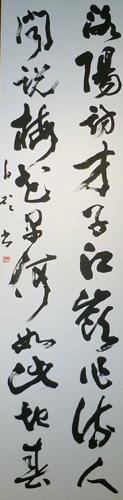 洛陽訪才子江嶺作流人
聞說梅花早何如此地春
書